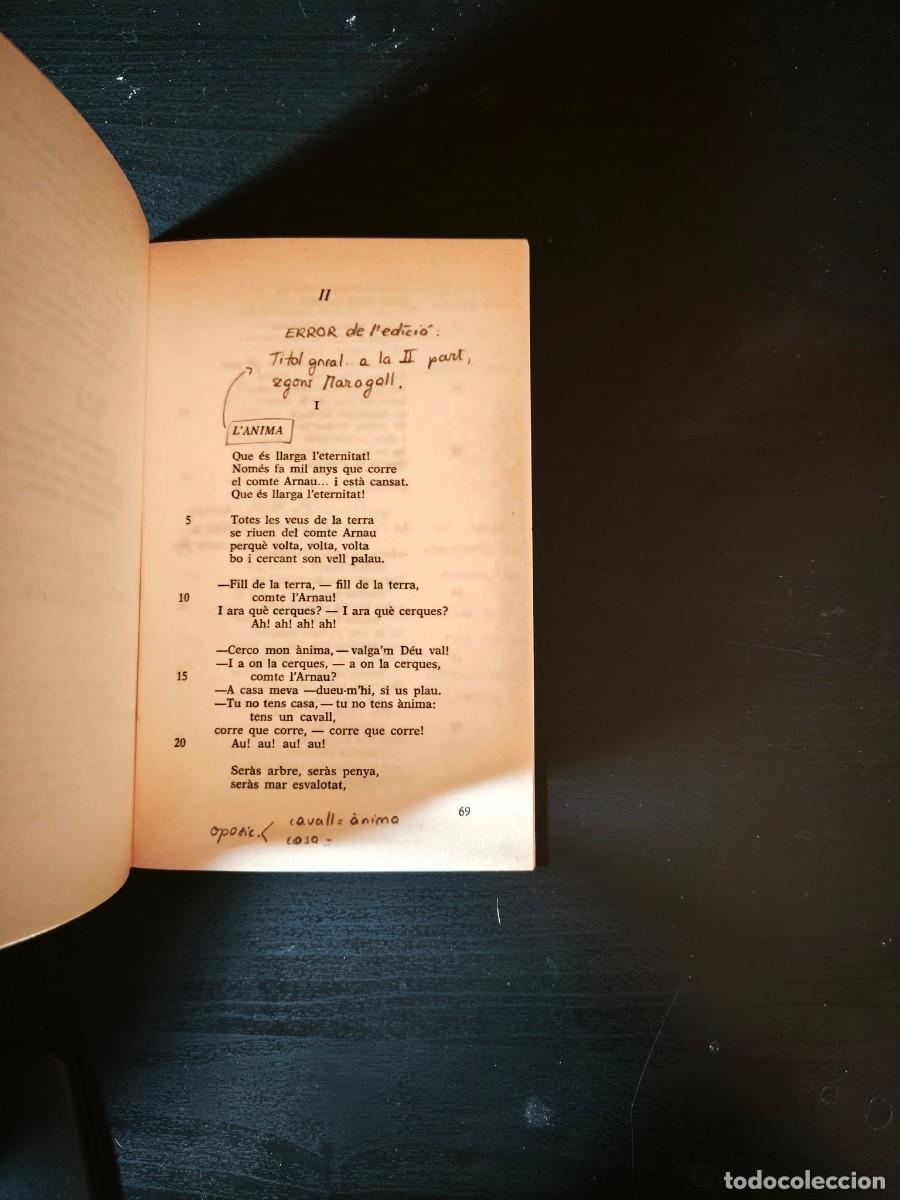 II
ERROR de l'edició:
Títol gnral. a la II part,
segons Maragall.
I
L'ANIMA
Que és llarga l'eternitat!
Només fa mil anys que corre
el comte Arnau... i està cansat.
Que és llarga l'eternitat!
5 Totes les veus de la terra
se riuen del comte Arnau
perquè volta, volta, volta
bo i cercant son vell palau.
—Fill de la terra, — fill de la terra,
10 comte l'Arnau!
I ara què cerques? — I ara què cerques?
Ah! ah! ah! ah!
—Cerco mon ànima, — valga'm Déu val!
—I a on la cerques, — a on la cerques,
15 comte l'Arnau?
—A casa meva —dueu-m'hi, si us plau.
—Tu no tens casa, — tu no tens ànima:
tens un cavall,
corre que corre, — corre que corre!
20 Au! au! au! au!
Seràs arbre, seràs penya,
seràs mar esvalotat,
69
oposic. < cavall = ànima
casa =
todocoleccion